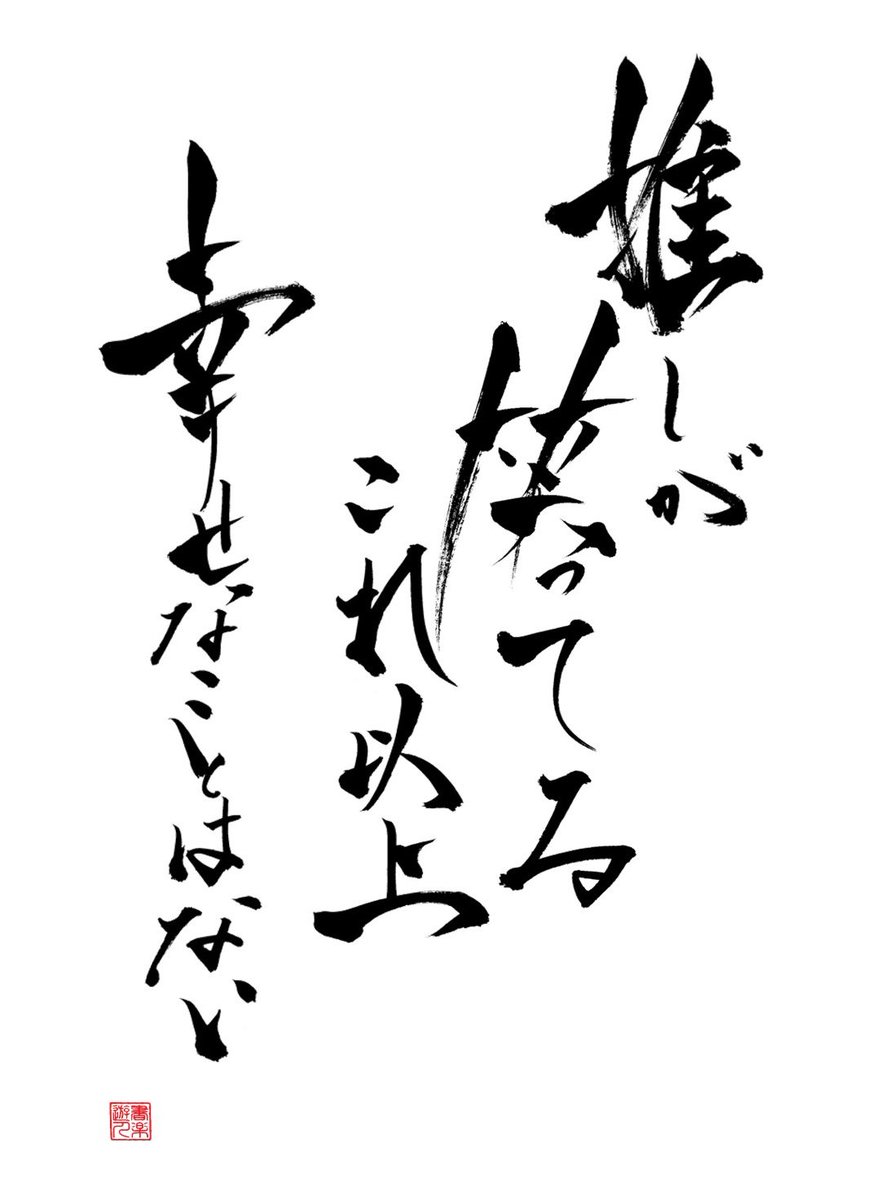 推しが
笑ってる
これ以上
幸せなことはない
書楽
遊人